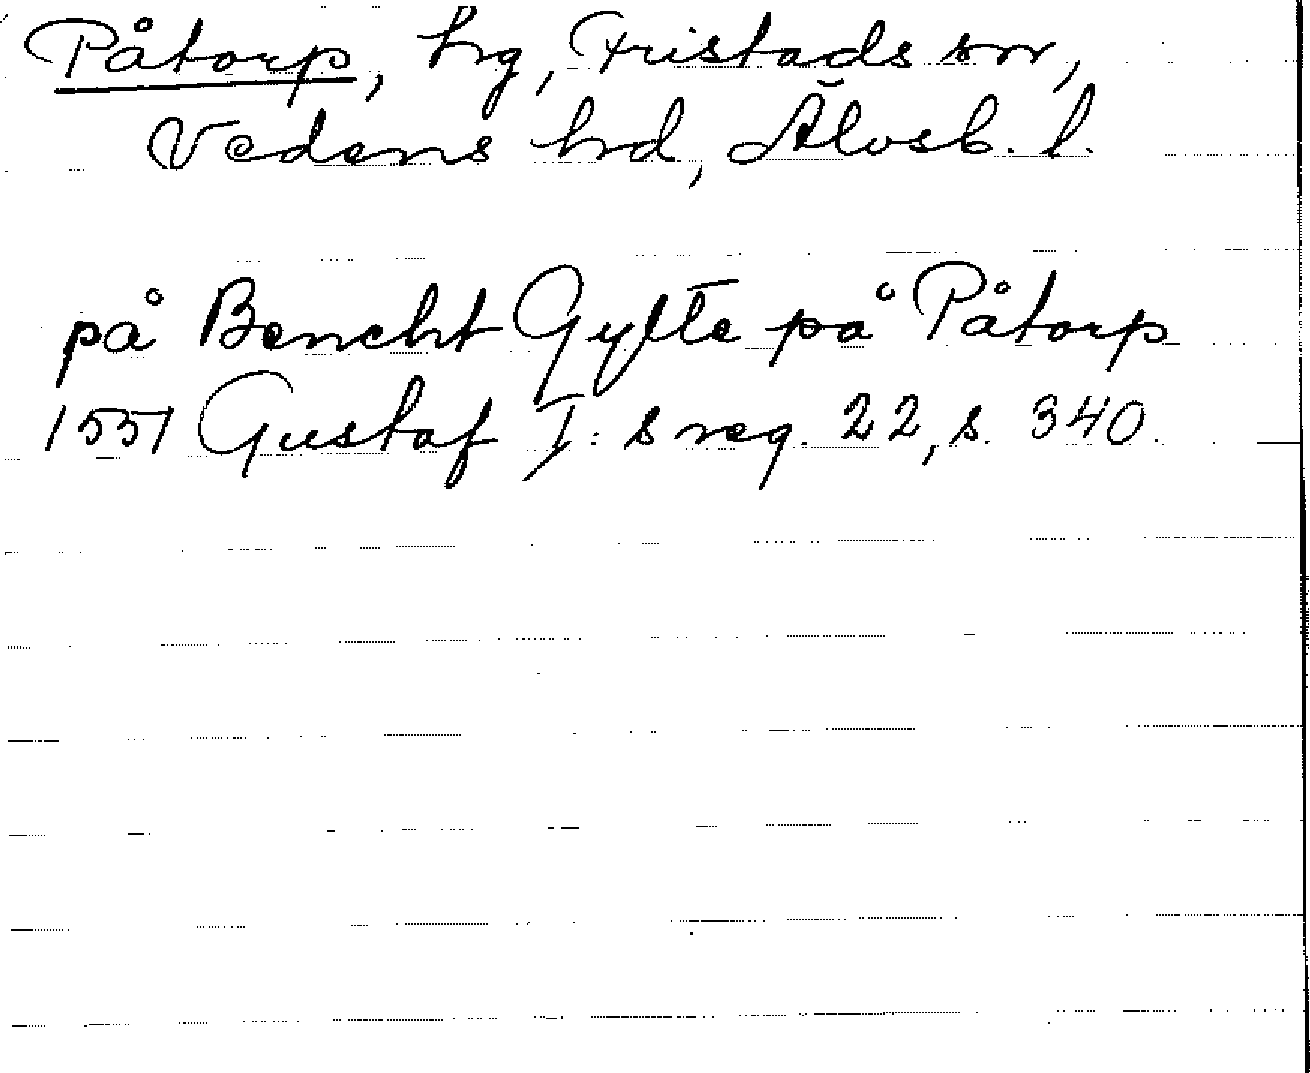 Påtorp, hg, Fristads sn,
Vedens hd, Älvsb. l.
på Bencht Gyltte på Påtorp
1551 Gustaf I:s reg. 22, s. 340.